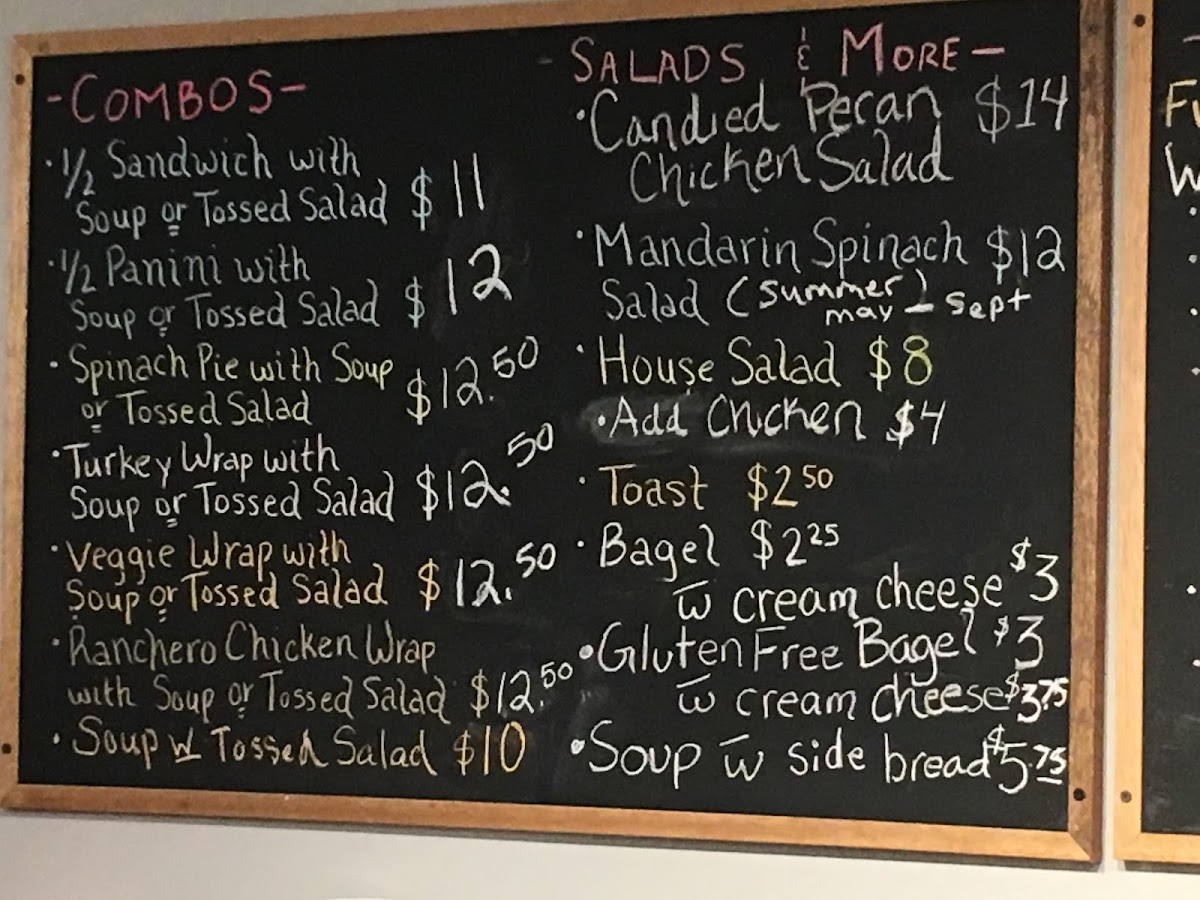 -COMBOS-
• 1/2 Sandwich with
Soup or Tossed Salad $11
• 1/2 Panini with
Soup or Tossed Salad $12
• Spinach Pie with Soup
or Tossed Salad $12.50
• Turkey Wrap with
Soup or Tossed Salad $12.50
• Veggie Wrap with
Soup or Tossed Salad $12.50
• Ranchero Chicken Wrap
with Soup or Tossed Salad $12.50
• Soup w Tossed Salad $10
- SALADS & MORE -
• Candied Pecan $14
Chicken Salad
• Mandarin Spinach $12
Salad (summer)
may - sept
• House Salad $8
• Add Chicken $4
• Toast $2 50
• Bagel $2 25
w̅ cream cheese $3
• Gluten Free Bagel $3
w̅ cream cheese $3.75
• Soup w̅ side bread $5.75